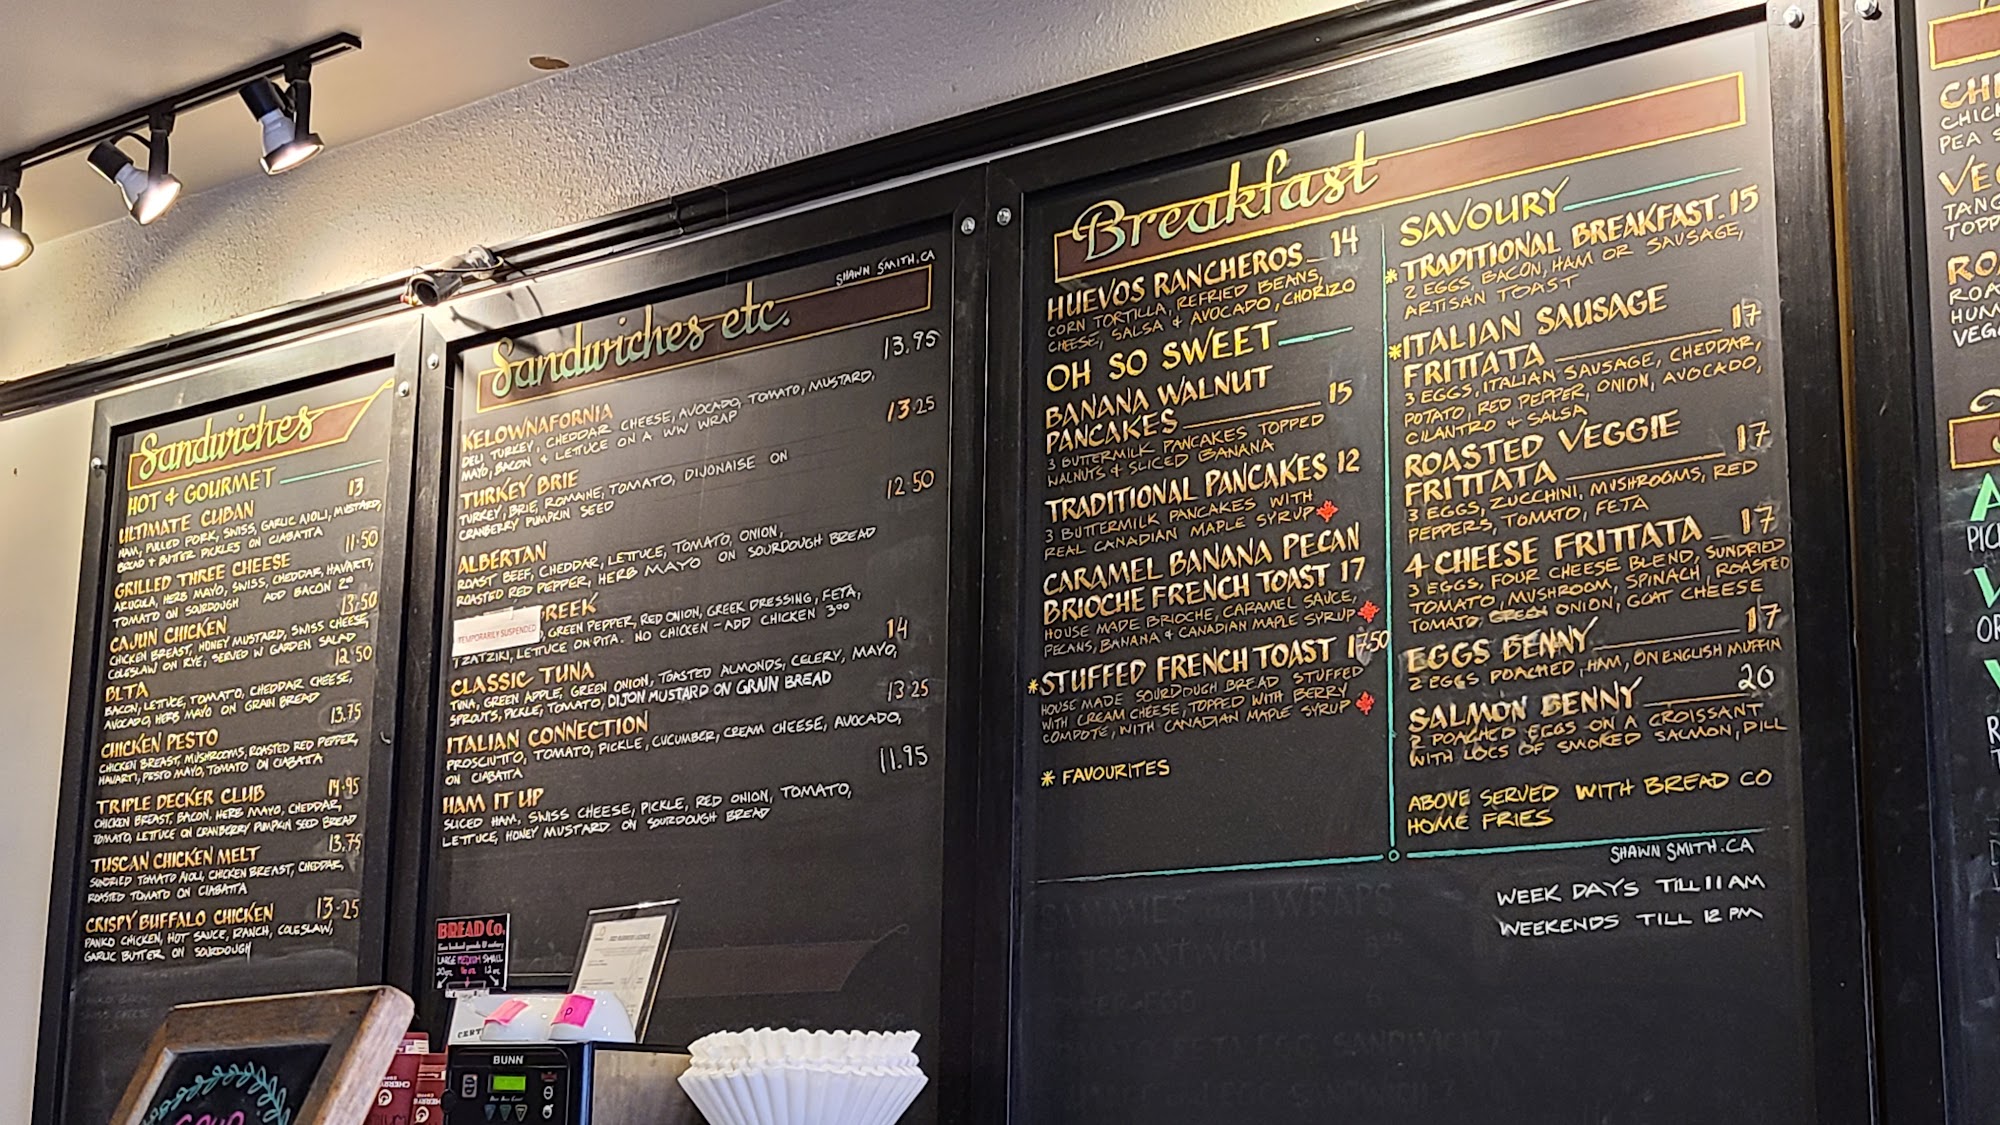 Sandwiches
HOT & GOURMET
13
ULTIMATE CUBAN
HAM, PULLED PORK, SWISS, GARLIC AIOLI, MUSTARD,
BREAD & BUTTER PICKLES ON CIABATTA
11.50
GRILLED THREE CHEESE
ARUGULA, HERB MAYO, SWISS, CHEDDAR, HAVARTI,
TOMATO ON SOURDOUGH ADD BACON 2.00
13.50
CAJUN CHICKEN
CHICKEN BREAST, HONEY MUSTARD, SWISS CHEESE,
COLESLAW ON RYE, SERVED W GARDEN SALAD
12.50
BLTA
BACON, LETTUCE, TOMATO, CHEDDAR CHEESE,
AVOCADO, HERB MAYO ON GRAIN BREAD
13.75
CHICKEN PESTO
CHICKEN BREAST, MUSHROOMS, ROASTED RED PEPPER,
HAVARTI, PESTO MAYO, TOMATO ON CIABATTA
TRIPLE DECKER CLUB 14.95
CHICKEN BREAST, BACON, HERB MAYO, CHEDDAR,
TOMATO, LETTUCE ON CRANBERRY PUMPKIN SEED BREAD
13.75
TUSCAN CHICKEN MELT
SUNDRIED TOMATO AIOLI, CHICKEN BREAST, CHEDDAR,
ROASTED TOMATO ON CIABATTA
CRISPY BUFFALO CHICKEN 13.25
PANKO CHICKEN, HOT SAUCE, RANCH, COLESLAW,
GARLIC BUTTER ON SOURDOUGH
SHAWN SMITH.CA
Sandwiches etc.
13.95
KELOWNAFORNIA
DELI TURKEY, CHEDDAR CHEESE, AVOCADO, TOMATO, MUSTARD,
MAYO, BACON & LETTUCE ON A WW WRAP
13.25
TURKEY BRIE
TURKEY, BRIE, ROMAINE, TOMATO, DIJONAISE ON
CRANBERRY PUMPKIN SEED
12.50
ALBERTAN
ROAST BEEF, CHEDDAR, LETTUCE, TOMATO, ONION,
ROASTED RED PEPPER, HERB MAYO ON SOURDOUGH BREAD
GREEK
TEMPORARILY SUSPENDED
, GREEN PEPPER, RED ONION, GREEK DRESSING, FETA,
TZATZIKI, LETTUCE ON PITA. NO CHICKEN - ADD CHICKEN 3.00
14
CLASSIC TUNA
TUNA, GREEN APPLE, GREEN ONION, TOASTED ALMONDS, CELERY, MAYO,
SPROUTS, PICKLE, TOMATO, DIJON MUSTARD ON GRAIN BREAD
13.25
ITALIAN CONNECTION
PROSCIUTTO, TOMATO, PICKLE, CUCUMBER, CREAM CHEESE, AVOCADO,
ON CIABATTA
11.95
HAM IT UP
SLICED HAM, SWISS CHEESE, PICKLE, RED ONION, TOMATO,
LETTUCE, HONEY MUSTARD ON SOURDOUGH BREAD
BREAD Co.
LARGE MEDIUM SMALL
20oz. 16 oz. 12 oz.
BUNN
Breakfast
HUEVOS RANCHEROS 14
CORN TORTILLA, REFRIED BEANS,
CHEESE, SALSA & AVOCADO, CHORIZO
OH SO SWEET
BANANA WALNUT
PANCAKES 15
3 BUTTERMILK PANCAKES TOPPED
WALNUTS & SLICED BANANA
TRADITIONAL PANCAKES 12
3 BUTTERMILK PANCAKES WITH
REAL CANADIAN MAPLE SYRUP
CARAMEL BANANA PECAN
BRIOCHE FRENCH TOAST 17
HOUSE MADE BRIOCHE, CARAMEL SAUCE,
PECANS, BANANA & CANADIAN MAPLE SYRUP
*STUFFED FRENCH TOAST 17.50
HOUSE MADE SOURDOUGH BREAD STUFFED
WITH CREAM CHEESE, TOPPED WITH BERRY
COMPOTE, WITH CANADIAN MAPLE SYRUP
* FAVOURITES
SAVOURY
*TRADITIONAL BREAKFAST. 15
2 EGGS, BACON, HAM OR SAUSAGE,
ARTISAN TOAST
*ITALIAN SAUSAGE
FRITTATA 17
3 EGGS, ITALIAN SAUSAGE, CHEDDAR,
POTATO, RED PEPPER, ONION, AVOCADO,
CILANTRO & SALSA
ROASTED VEGGIE
FRITTATA 17
3 EGGS, ZUCCHINI, MUSHROOMS, RED
PEPPERS, TOMATO, FETA
4 CHEESE FRITTATA 17
3 EGGS, FOUR CHEESE BLEND, SUNDRIED
TOMATO, MUSHROOM, SPINACH, ROASTED
TOMATO, GREEN ONION, GOAT CHEESE
EGGS BENNY 17
2 EGGS POACHED, HAM, ON ENGLISH MUFFIN
SALMON BENNY 20
2 POACHED EGGS ON A CROISSANT
WITH LOTS OF SMOKED SALMON, DILL
ABOVE SERVED WITH BREAD CO
HOME FRIES
SHAWN SMITH.CA
WEEK DAYS TILL 11 AM
WEEKENDS TILL 12 PM